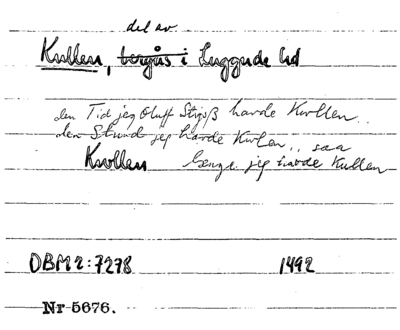 del av
Kullen, bergås i Luggude hd
den Tid jeg Oluff Stigsß havde Kwllen..
den Stund jeg havde Kwlen,, saa
Kwllen længe jeg havde Kullen
DBM 2:7278 1492
Nr 5676.